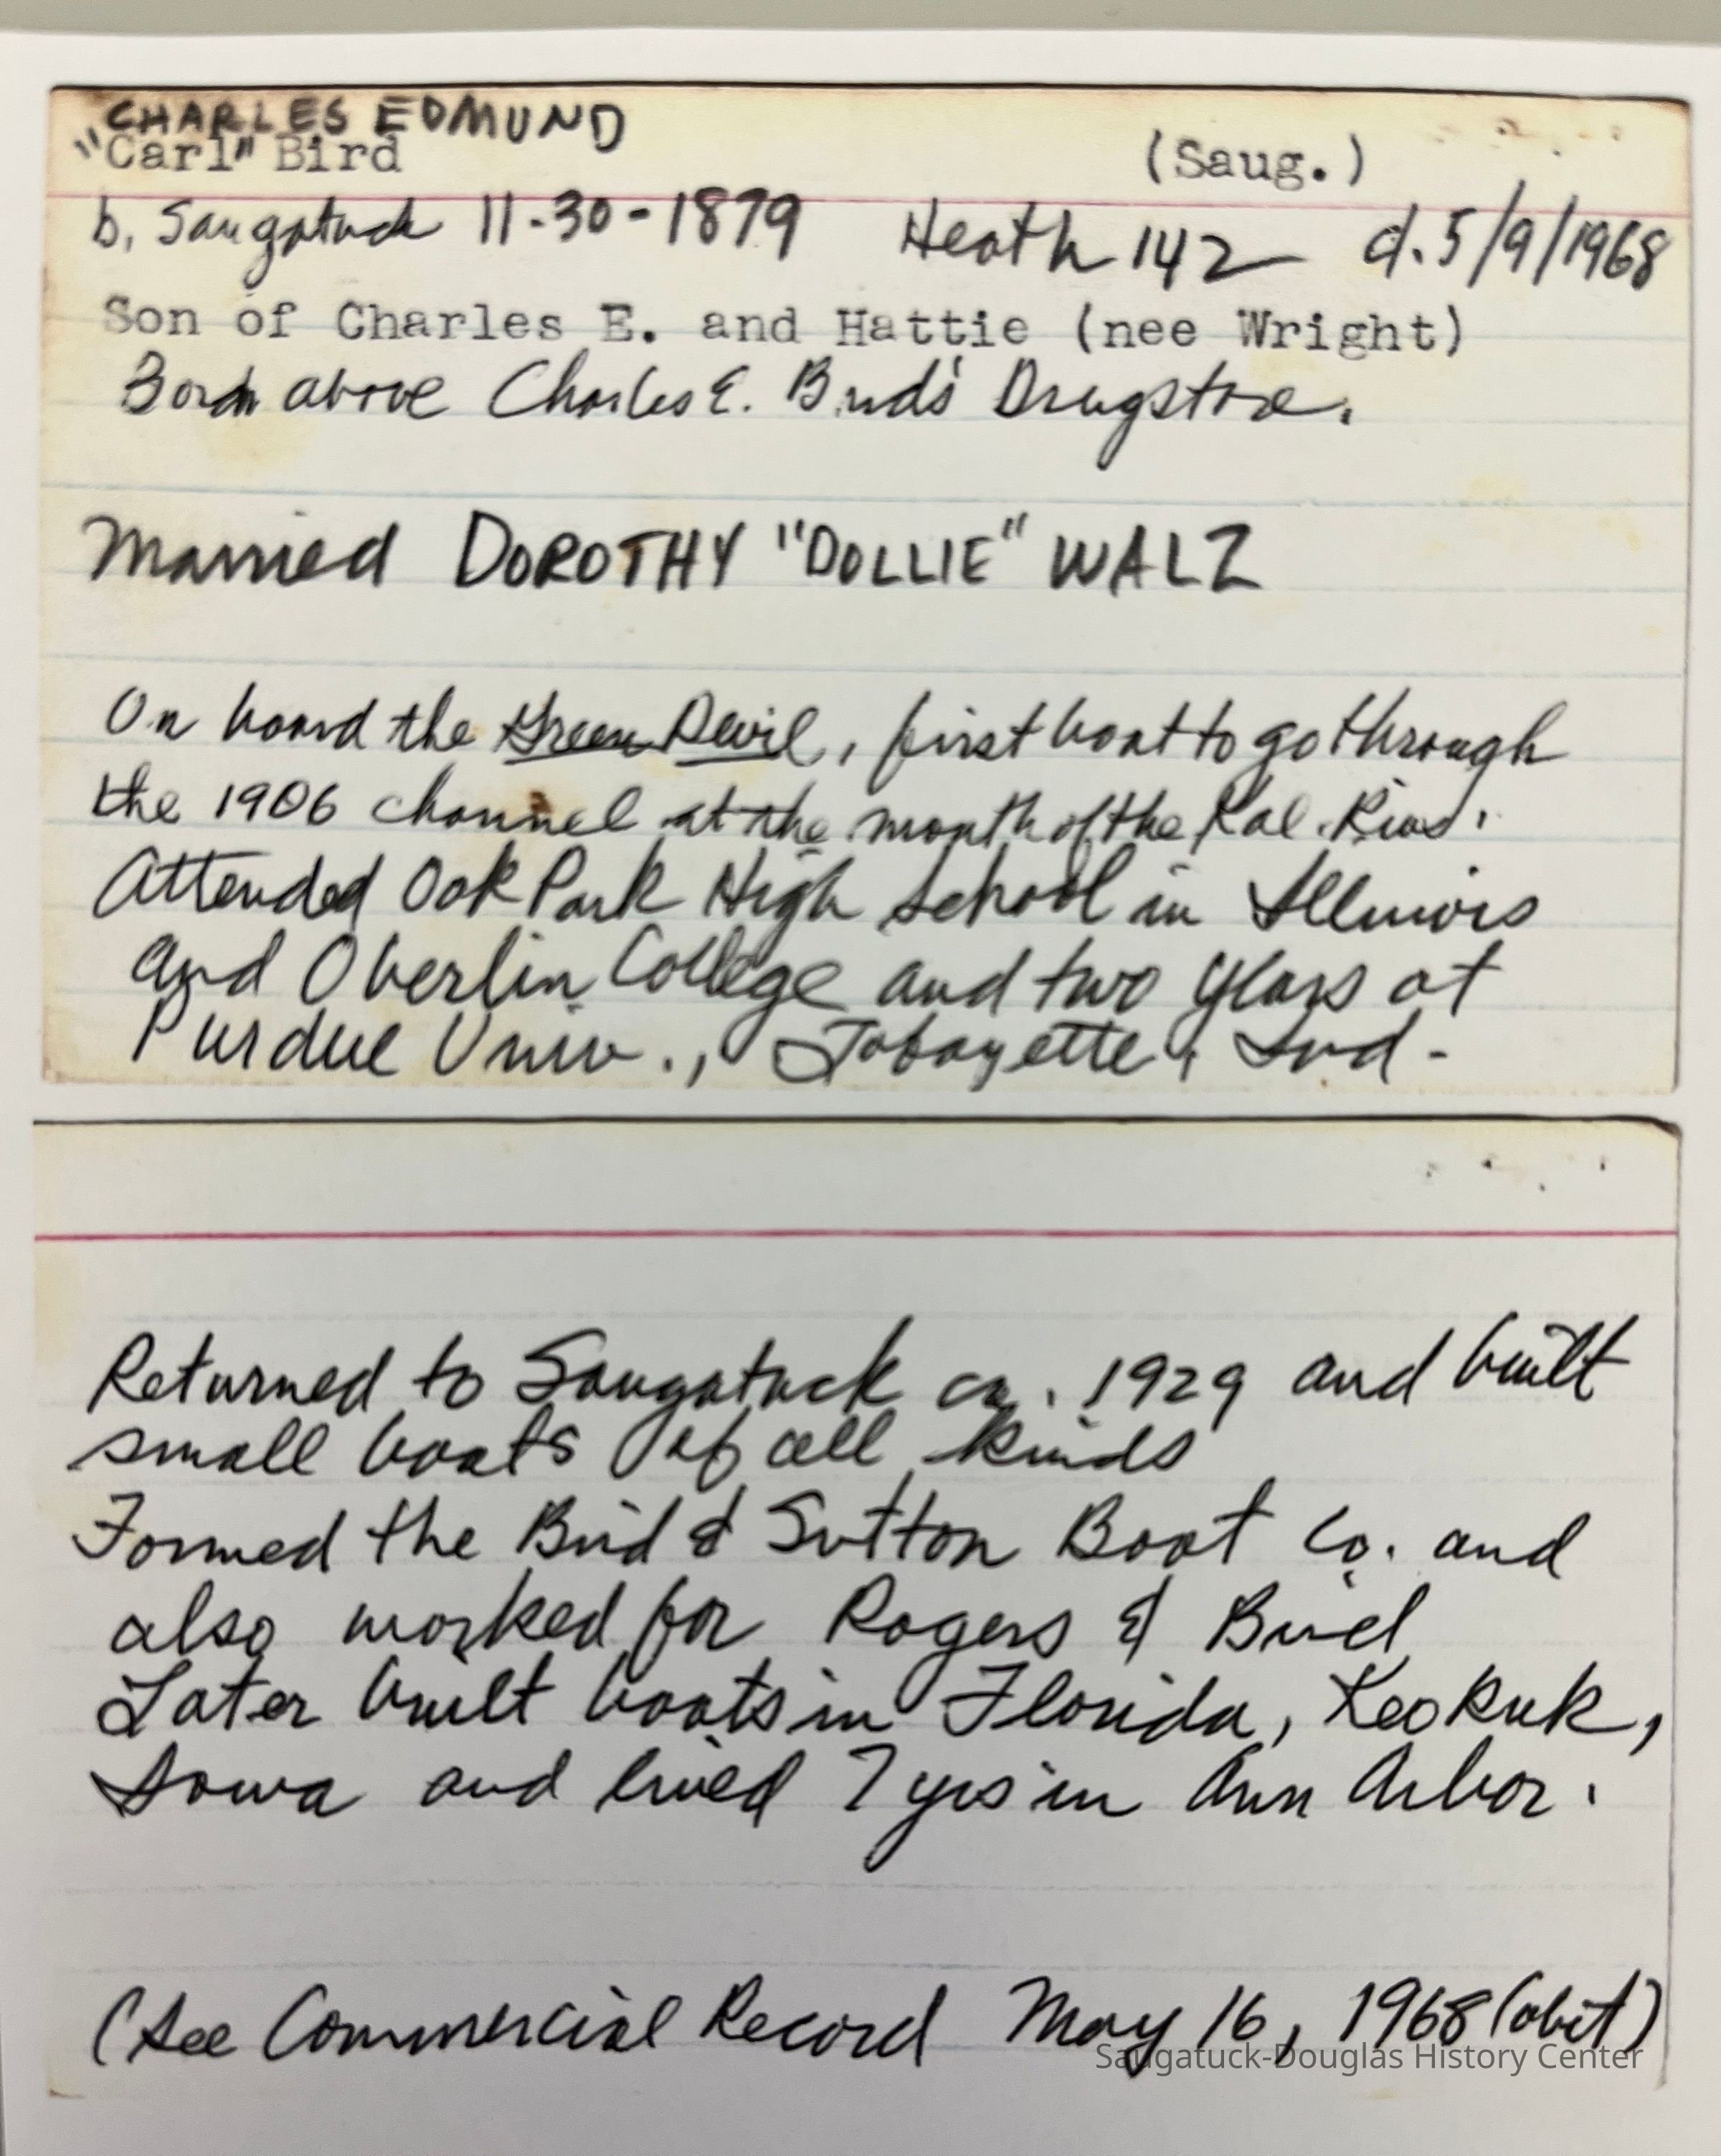 CHARLES EDMUND
"Carl" Bird (Saug.)
b. Saugatuck 11-30-1879 Heath 142 d. 5/9/1968
Son of Charles E. and Hattie (nee Wright)
Born above Charles E. Bird's Drugstore.
Married DOROTHY "DOLLIE" WALZ
On board the Green Devil, first boat to go through
the 1906 channel at the mouth of the Kal. River.
Attended Oak Park High School in Illinois
and Oberlin College and two years at
Purdue Univ., Lafayette, Ind.
Returned to Saugatuck ca. 1929 and built
small boats of all kinds
Formed the Bird & Sutton Boat Co. and
also worked for Rogers & Bird
Later built boats in Florida, Keokuk,
Iowa and lived 7 yrs in Ann Arbor.
(See Commercial Record May 16, 1968 (obit)
Saugatuck-Douglas History Center